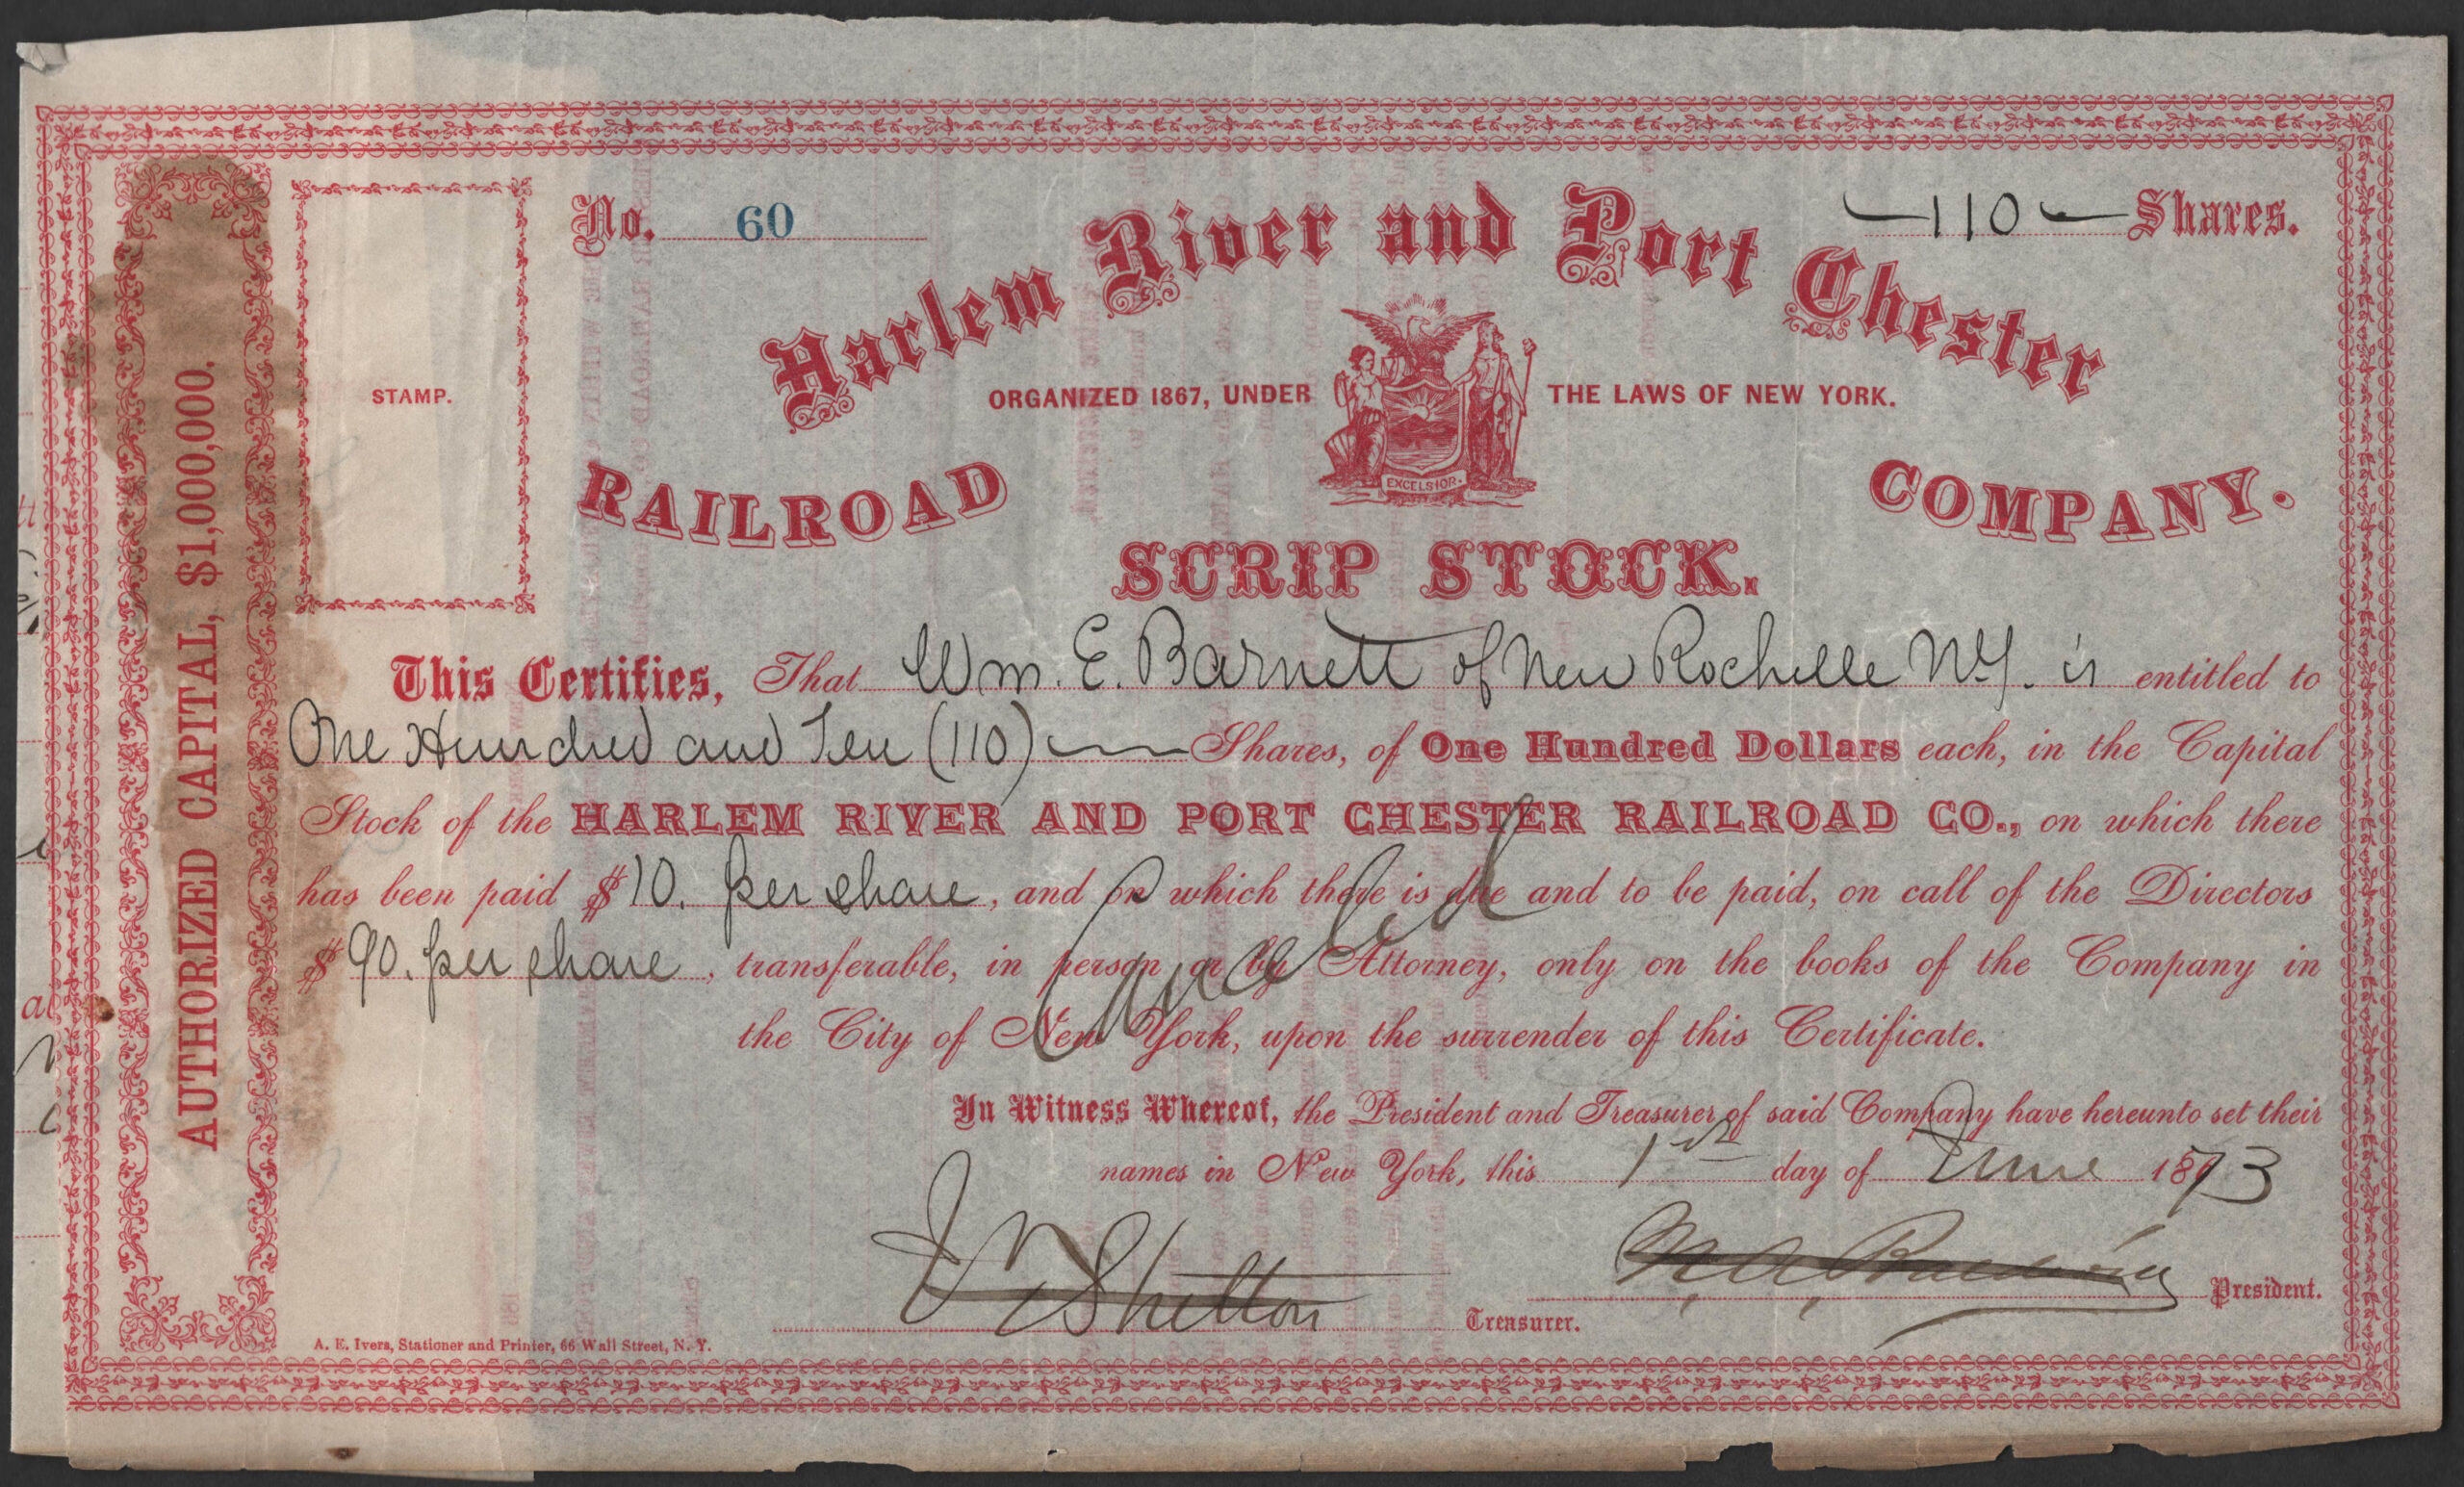 No. 60
—110— Shares.
Harlem River and Port Chester
STAMP.
ORGANIZED 1867, UNDER THE LAWS OF NEW YORK.
EXCELSIOR.
RAILROAD COMPANY.
SCRIP STOCK.
AUTHORIZED CAPITAL, $1,000,000.
This Certifies, That Wm. E. Barnett of New Rochelle N.Y. is entitled to
One Hundred and Ten (110) Shares, of One Hundred Dollars each, in the Capital
Stock of the HARLEM RIVER AND PORT CHESTER RAILROAD CO., on which there
has been paid $10. per share, and on which there is due and to be paid, on call of the Directors
$90. per share, transferable, in person or by Attorney, only on the books of the Company in
the City of New York, upon the surrender of this Certificate.
Canceled
In Witness Whereof, the President and Treasurer of said Company have hereunto set their
names in New York, this 1st day of June 1873
Shelton Treasurer.
President.
A. E. Ivers, Stationer and Printer, 66 Wall Street, N. Y.